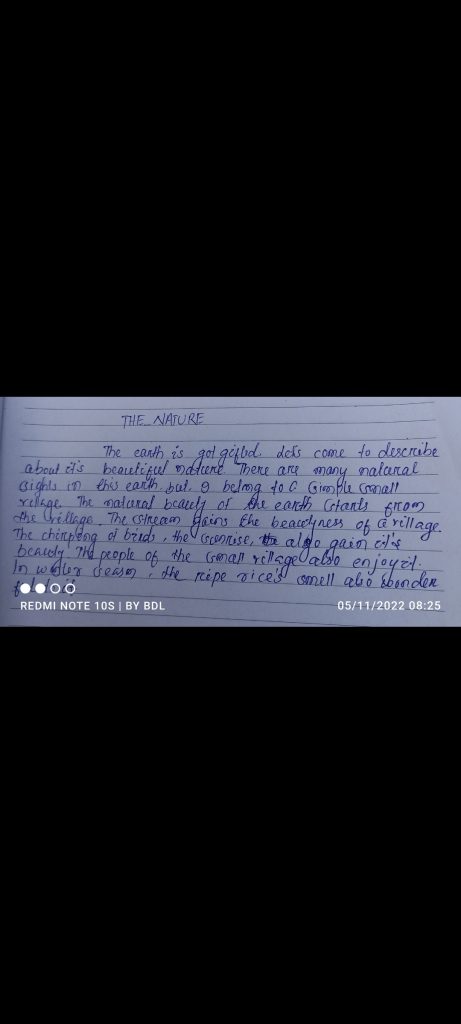 THE NATURE
The earth is got gifted. lets come to describe
about it's beautiful nature. There are many natural
sights in this earth. but I belong to a simple small
village. The natural beauty of the earth starts from
the village. The stream gains the beautyness of a village.
The chirping of birds, the sunrise, the also gain it's
beauty. The people of the small village also enjoy it.
In winter season, the ripe rice's smell also wonder
REDMI NOTE 10S | BY BDL
05/11/2022 08:25